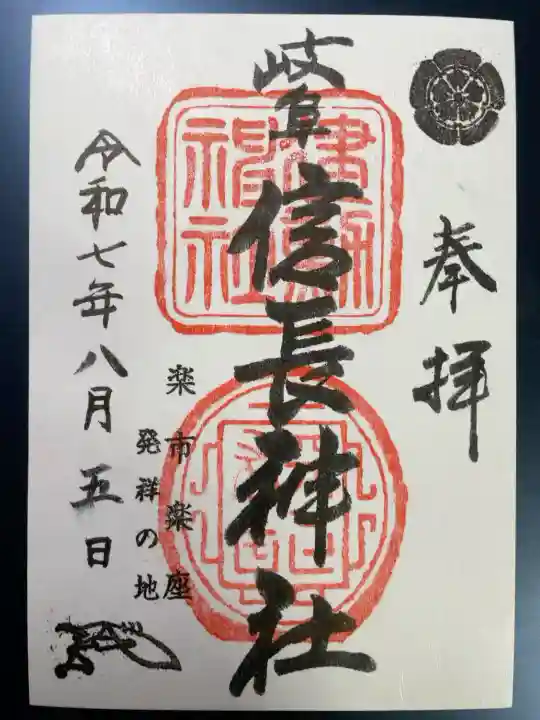 奉拝
岐阜信長神社
楽市楽座
発祥の地
令和七年八月五日